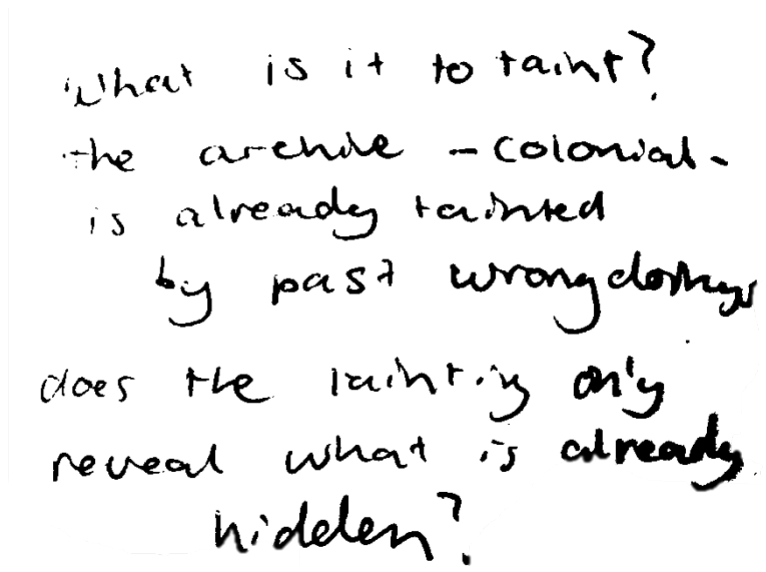 what is it to taint?
the archive - colonial -
is already tainted
by past wrongdoings
does the tainting only
reveal what is already
hidden?